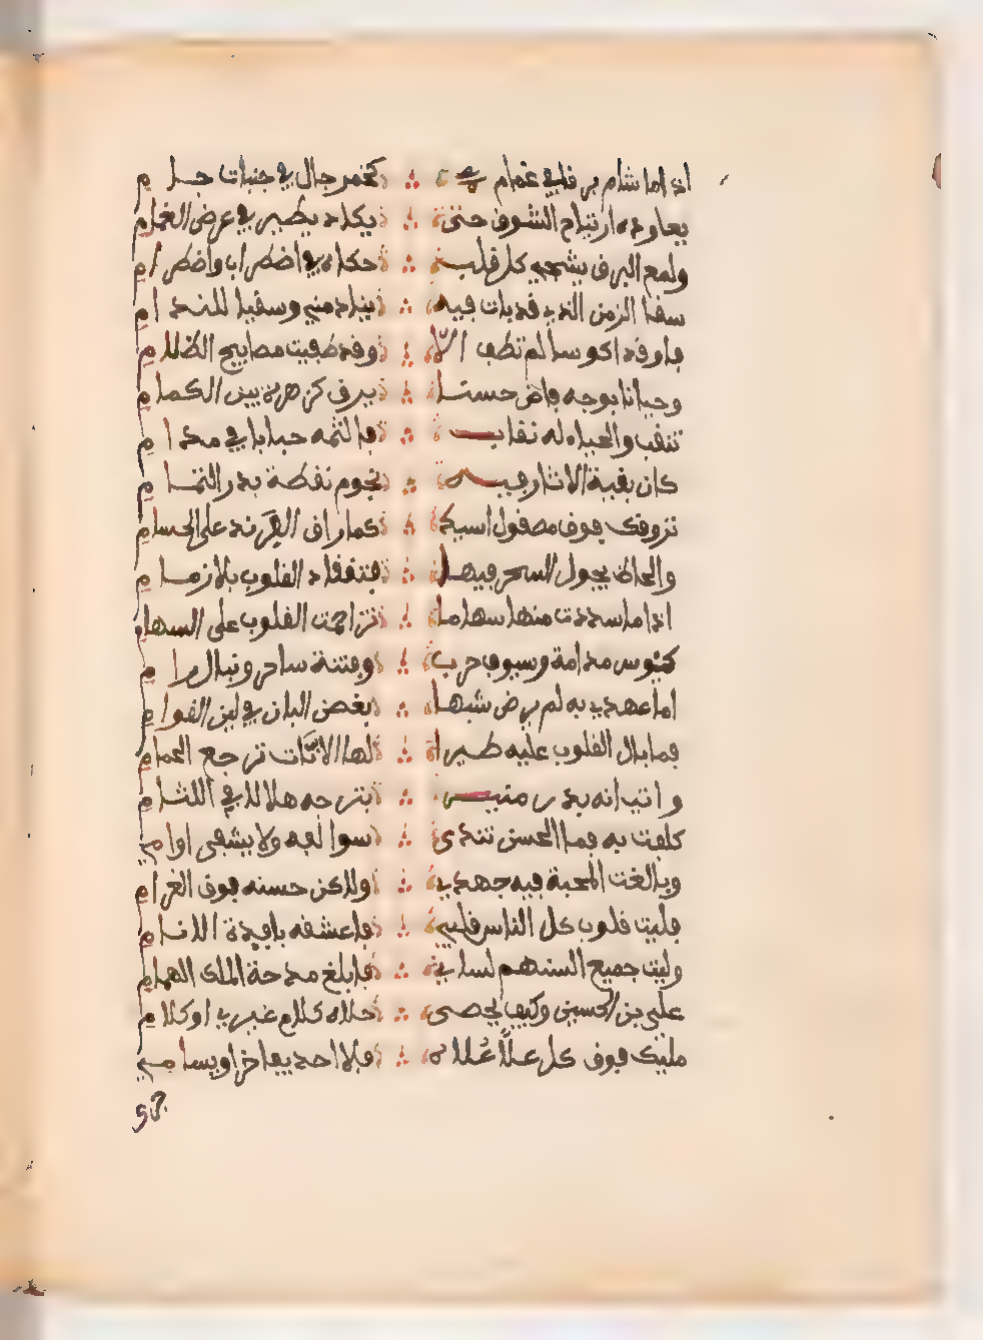 اذا ما شام برقا في غمام كخمر جال في جنبات جام
يعاوده ارتياح الشوق حتى يكاد يطير في عرض الغمام
ولمع البرق يشجيه كل قلب حكاه في اضطراب واضطرام
سقا الزمن الذي قد بات فيه ينادمني وسقيا للندام
باوقد اكوسا لم تطف الا وقد طفيت مصابيح الظلام
وحيانا بوجه فاض حسنا يرف كزهرة بين الكمام
تنقب والحياء له نقاب فالثمه حبابا في مدام
كان بقية الاثار فيه نجوم نقطة بدر التمام
تروقك فوق مصقول اسيل كما راق الفرند على الحسام
والحاظ يجول السحر فيها فتنقاد القلوب بلا زمام
اذا ما سددت منها سهاما تزاحمت القلوب على السهام
كئوس مدامة وسيوف حرب وفتنة ساحر ونبال رام
اما عهدي به لم يرض شبها بغصن البان في لين القوام
فما بال القلوب عليه طيرا لها الانات ترجع الحمام
واني انه بدر منير بترجه هلالا في اللثام
كلفت به فما الحسن تندى سوالفه ولا يشفى اوامي
وبالغت المحبة فيه جهدي ولاكن حسنه فوق الغرام
فليت قلوب كل الناس قلبي فاعشقه بافيدة الانام
وليت جميع السنهم لساني فابلغ مدحة الملك الهمام
علي بن الحسين وكيف يحصى حلاه كلام غيري او كلام
مليك فوق كل علا علاه فلا احد يفاخر او يسامي